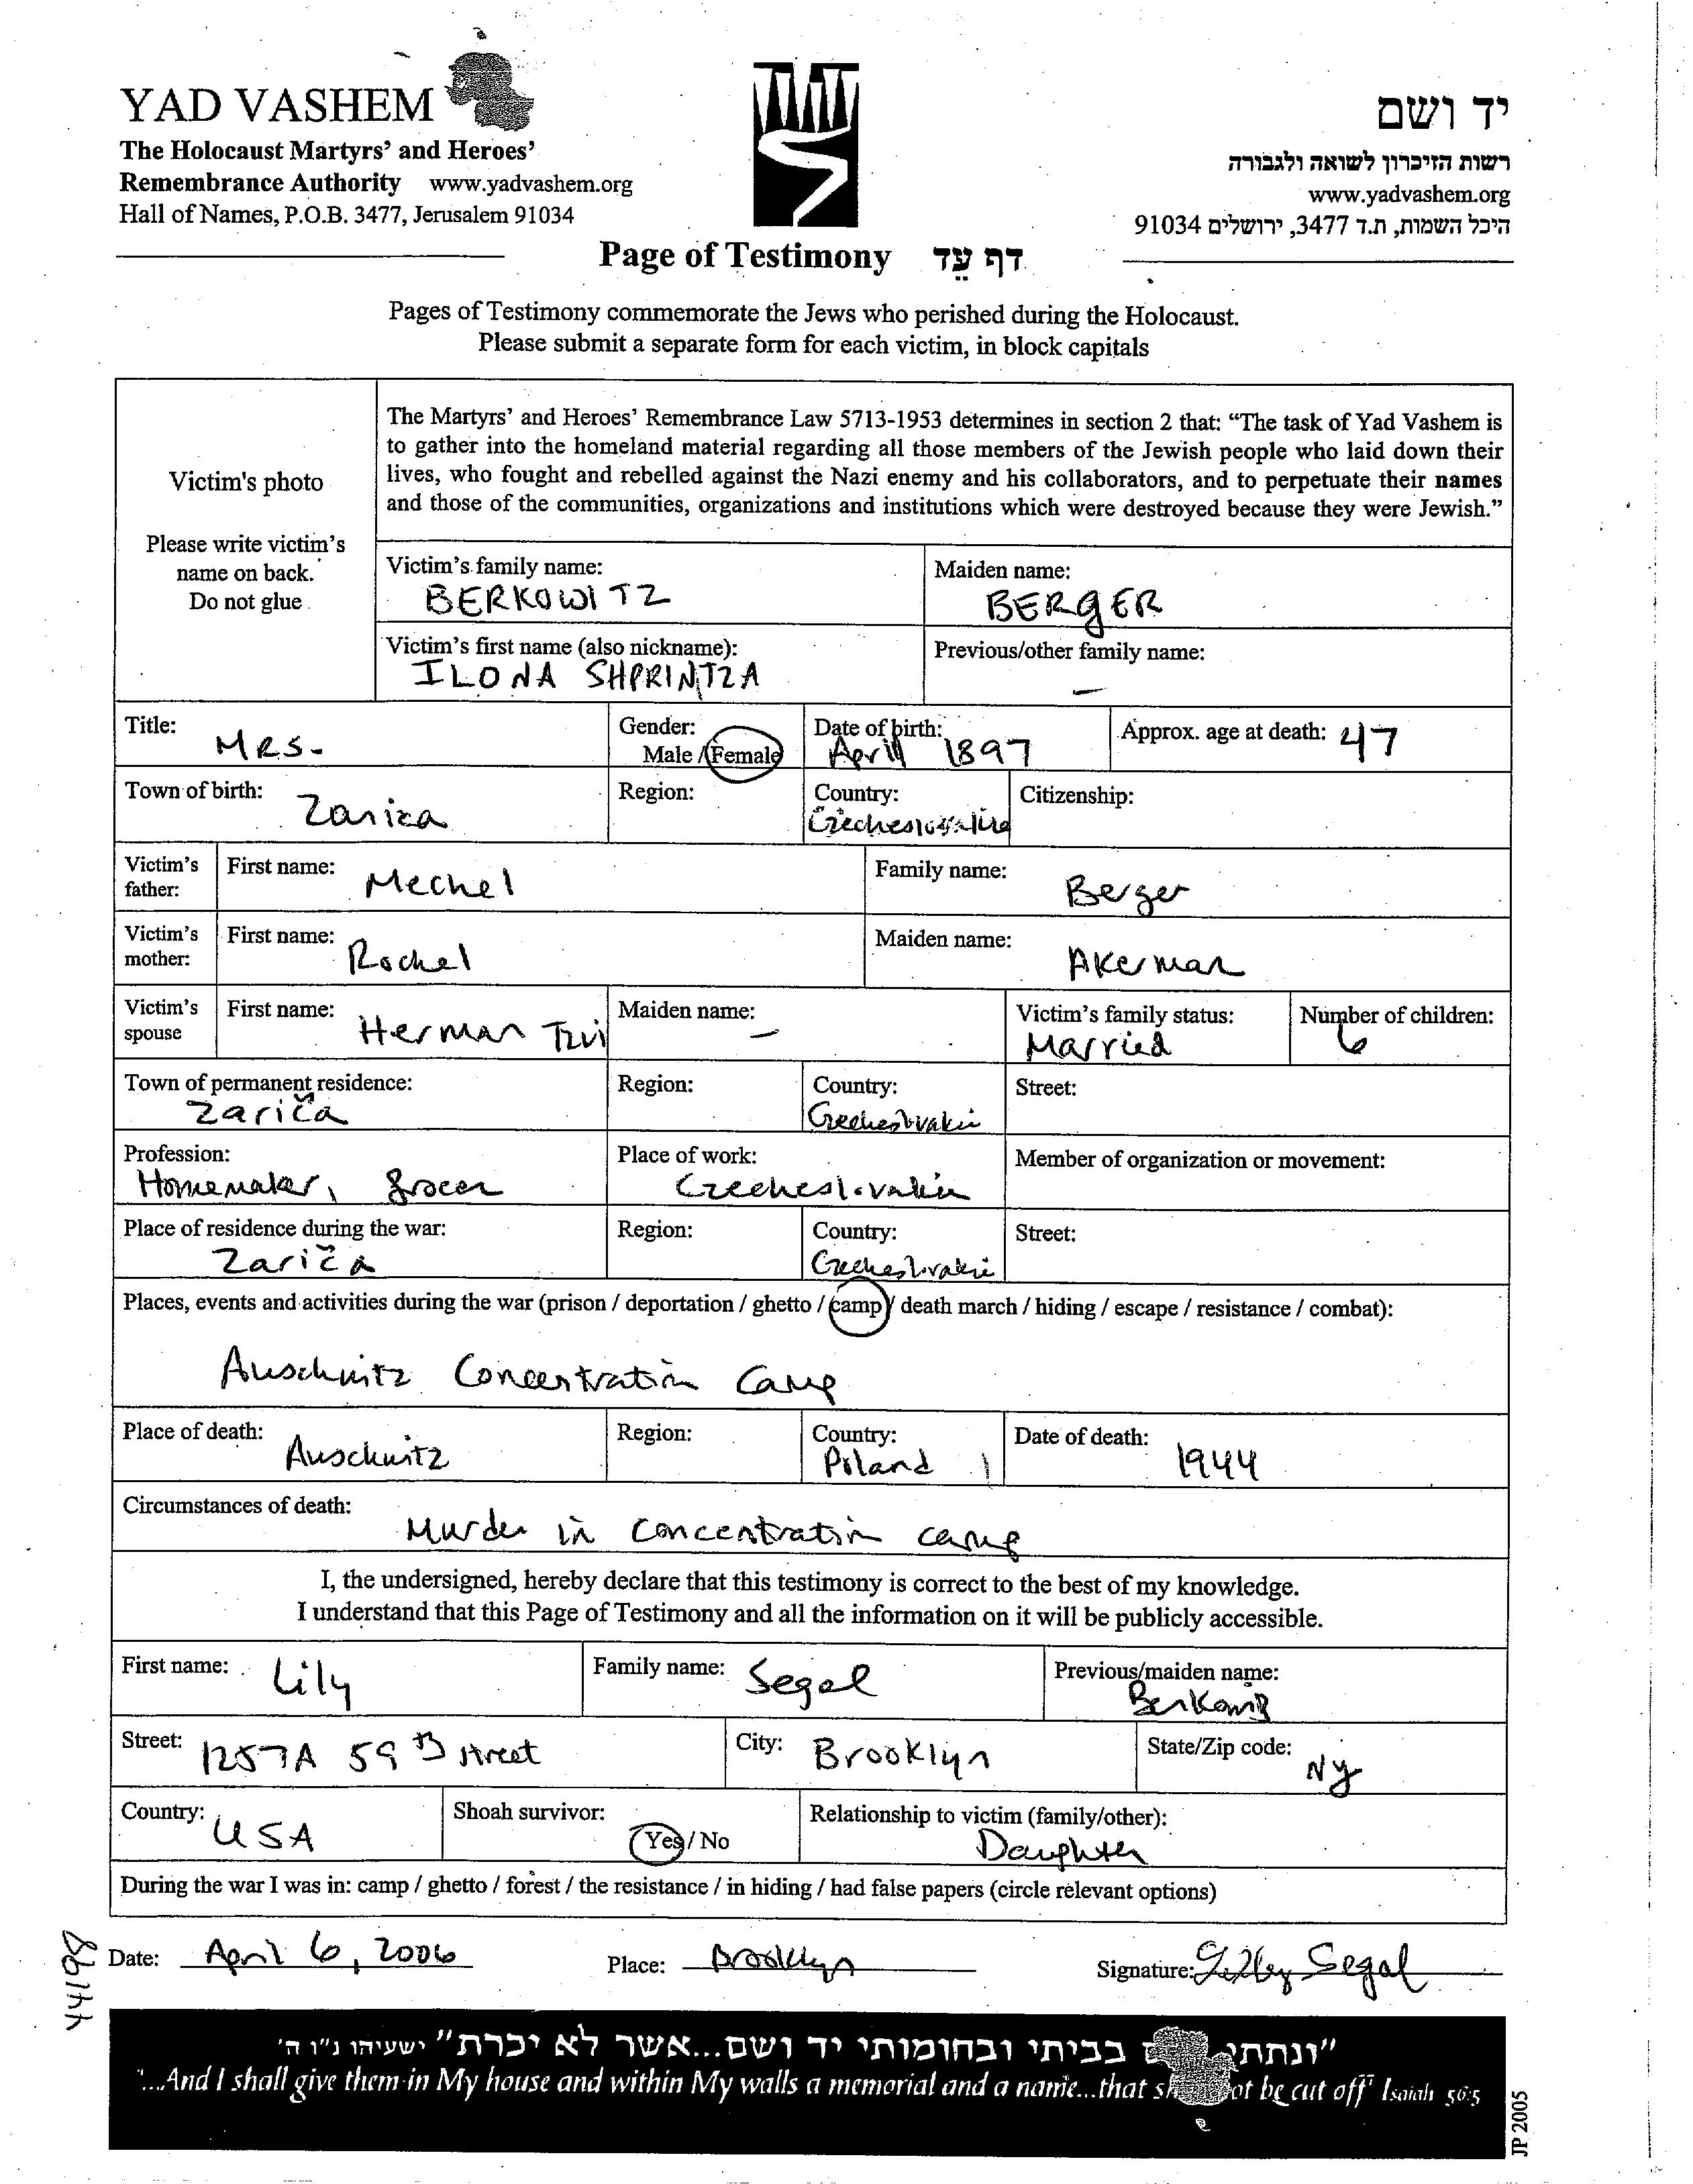 YAD VASHEM
The Holocaust Martyrs' and Heroes'
Remembrance Authority www.yadvashem.org
Hall of Names, P.O.B. 3477, Jerusalem 91034
יד ושם
רשות הזיכרון לשואה ולגבורה
www.yadvashem.org
היכל השמות, ת.ד 3477, ירושלים 91034
Page of Testimony דף עֵד
Pages of Testimony commemorate the Jews who perished during the Holocaust.
Please submit a separate form for each victim, in block capitals
Victim's photo
Please write victim's
name on back.
Do not glue
The Martyrs' and Heroes' Remembrance Law 5713-1953 determines in section 2 that: "The task of Yad Vashem is
to gather into the homeland material regarding all those members of the Jewish people who laid down their
lives, who fought and rebelled against the Nazi enemy and his collaborators, and to perpetuate their names
and those of the communities, organizations and institutions which were destroyed because they were Jewish."
Victim's family name: BERKOWITZ
Maiden name: BERGER
Victim's first name (also nickname): ILONA SHPRINTZA
Previous/other family name: –
Title: MRS.
Gender: Male / Female
Date of birth: April 1897
Approx. age at death: 47
Town of birth: Zarica
Region:
Country: Czecheslovakia
Citizenship:
Victim's father: First name: Mechel
Family name: Berger
Victim's mother: First name: Rachel
Maiden name: Akerman
Victim's spouse First name: Herman Tzvi
Maiden name: –
Victim's family status: Married
Number of children: 6
Town of permanent residence: Zariča
Region:
Country: Czecheslovakia
Street:
Profession: Homemaker, grocer
Place of work: Czecheslovakia
Member of organization or movement:
Place of residence during the war: Zariča
Region:
Country: Czecheslovakia
Street:
Places, events and activities during the war (prison / deportation / ghetto / camp / death march / hiding / escape / resistance / combat):
Auschwitz Concentration Camp
Place of death: Auschwitz
Region:
Country: Poland
Date of death: 1944
Circumstances of death: Murder in concentration camp
I, the undersigned, hereby declare that this testimony is correct to the best of my knowledge.
I understand that this Page of Testimony and all the information on it will be publicly accessible.
First name: Lily
Family name: Segal
Previous/maiden name: Berkowitz
Street: 1257A 59th street
City: Brooklyn
State/Zip code: NY
Country: USA
Shoah survivor: Yes / No
Relationship to victim (family/other): Daughter
During the war I was in: camp / ghetto / forest / the resistance / in hiding / had false papers (circle relevant options)
Date: April 6, 2006
Place: Brooklyn
Signature: Segal
"ונתתי בביתי ובחומותי יד ושם...אשר לא יכרת" ישעיהו נ"ו ה'
"...And I shall give them in My house and within My walls a memorial and a name...that be cut off" Isaiah 56:5
JP 2005